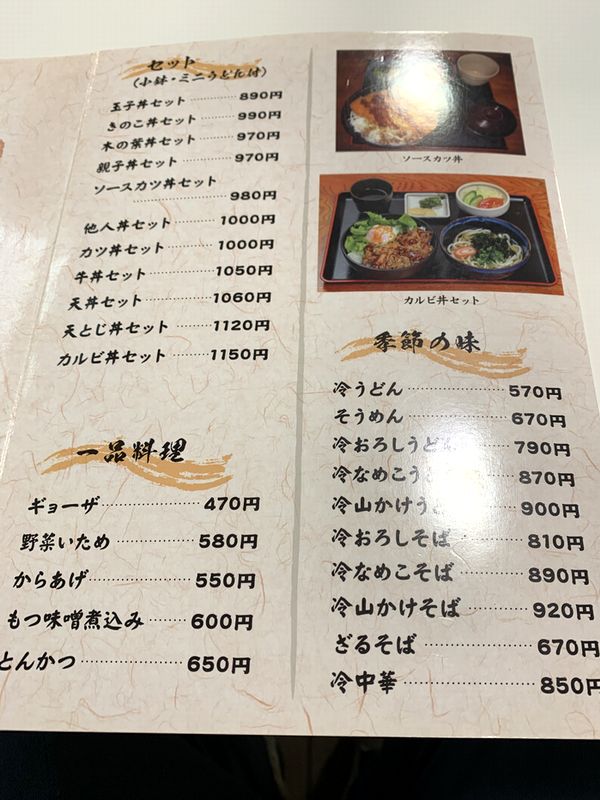 セット
(小鉢・ミニうどん付)
玉子丼セット 890円
きのこ丼セット 990円
木の葉丼セット 970円
親子丼セット 970円
ソースカツ丼セット
980円
他人丼セット 1000円
カツ丼セット 1000円
牛丼セット 1050円
天丼セット 1060円
天とじ丼セット 1120円
カルビ丼セット 1150円
一品料理
ギョーザ 470円
野菜いため 580円
からあげ 550円
もつ味噌煮込み 600円
とんかつ 650円
ソースカツ丼
カルビ丼セット
季節の味
冷うどん 570円
そうめん 670円
冷おろしうどん 790円
冷なめこう 870円
冷山かけう 900円
冷おろしそば 810円
冷なめこそば 890円
冷山かけそば 920円
ざるそば 670円
冷中華 850円